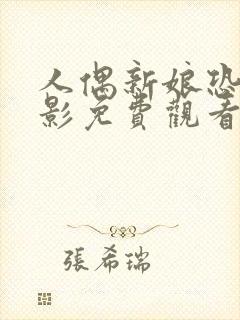 人偶新娘恐
影免費觀看
張希瑞